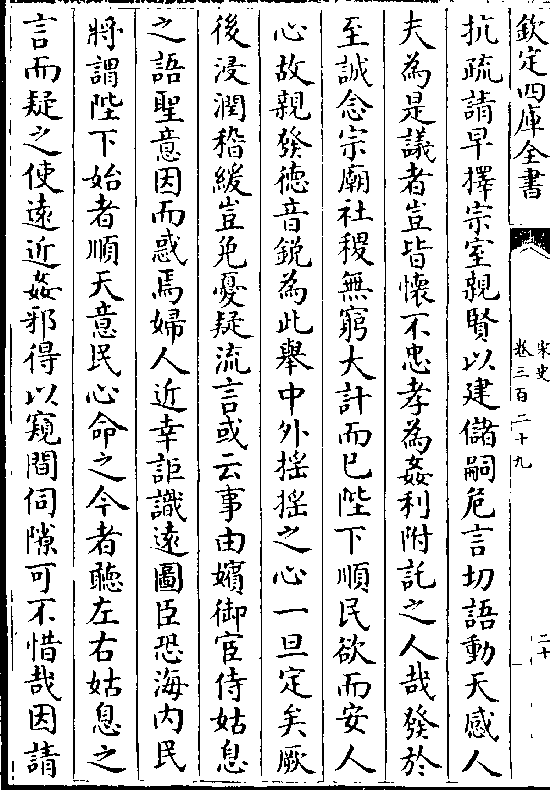 欽定四庫全書
宋史
卷三百二十九
二十
抗疏請早擇宗室親賢以建儲嗣危言切語動天感人
夫為是議者豈皆懷不忠孝為姦利附託之人哉發於
至誠念宗廟社稷無窮大計而已陛下順民欲而安人
心故親發德音鋭為此舉中外揺揺之心一旦定矣厥
後浸潤稽緩豈免憂疑流言或云事由嬪御宦侍姑息
之語聖意因而惑焉婦人近幸詎識遠圖臣恐海内民
將謂陛下始者順天意民心命之今者聽左右姑息之
言而疑之使遠近姦邪得以窺間伺隙可不惜哉因請